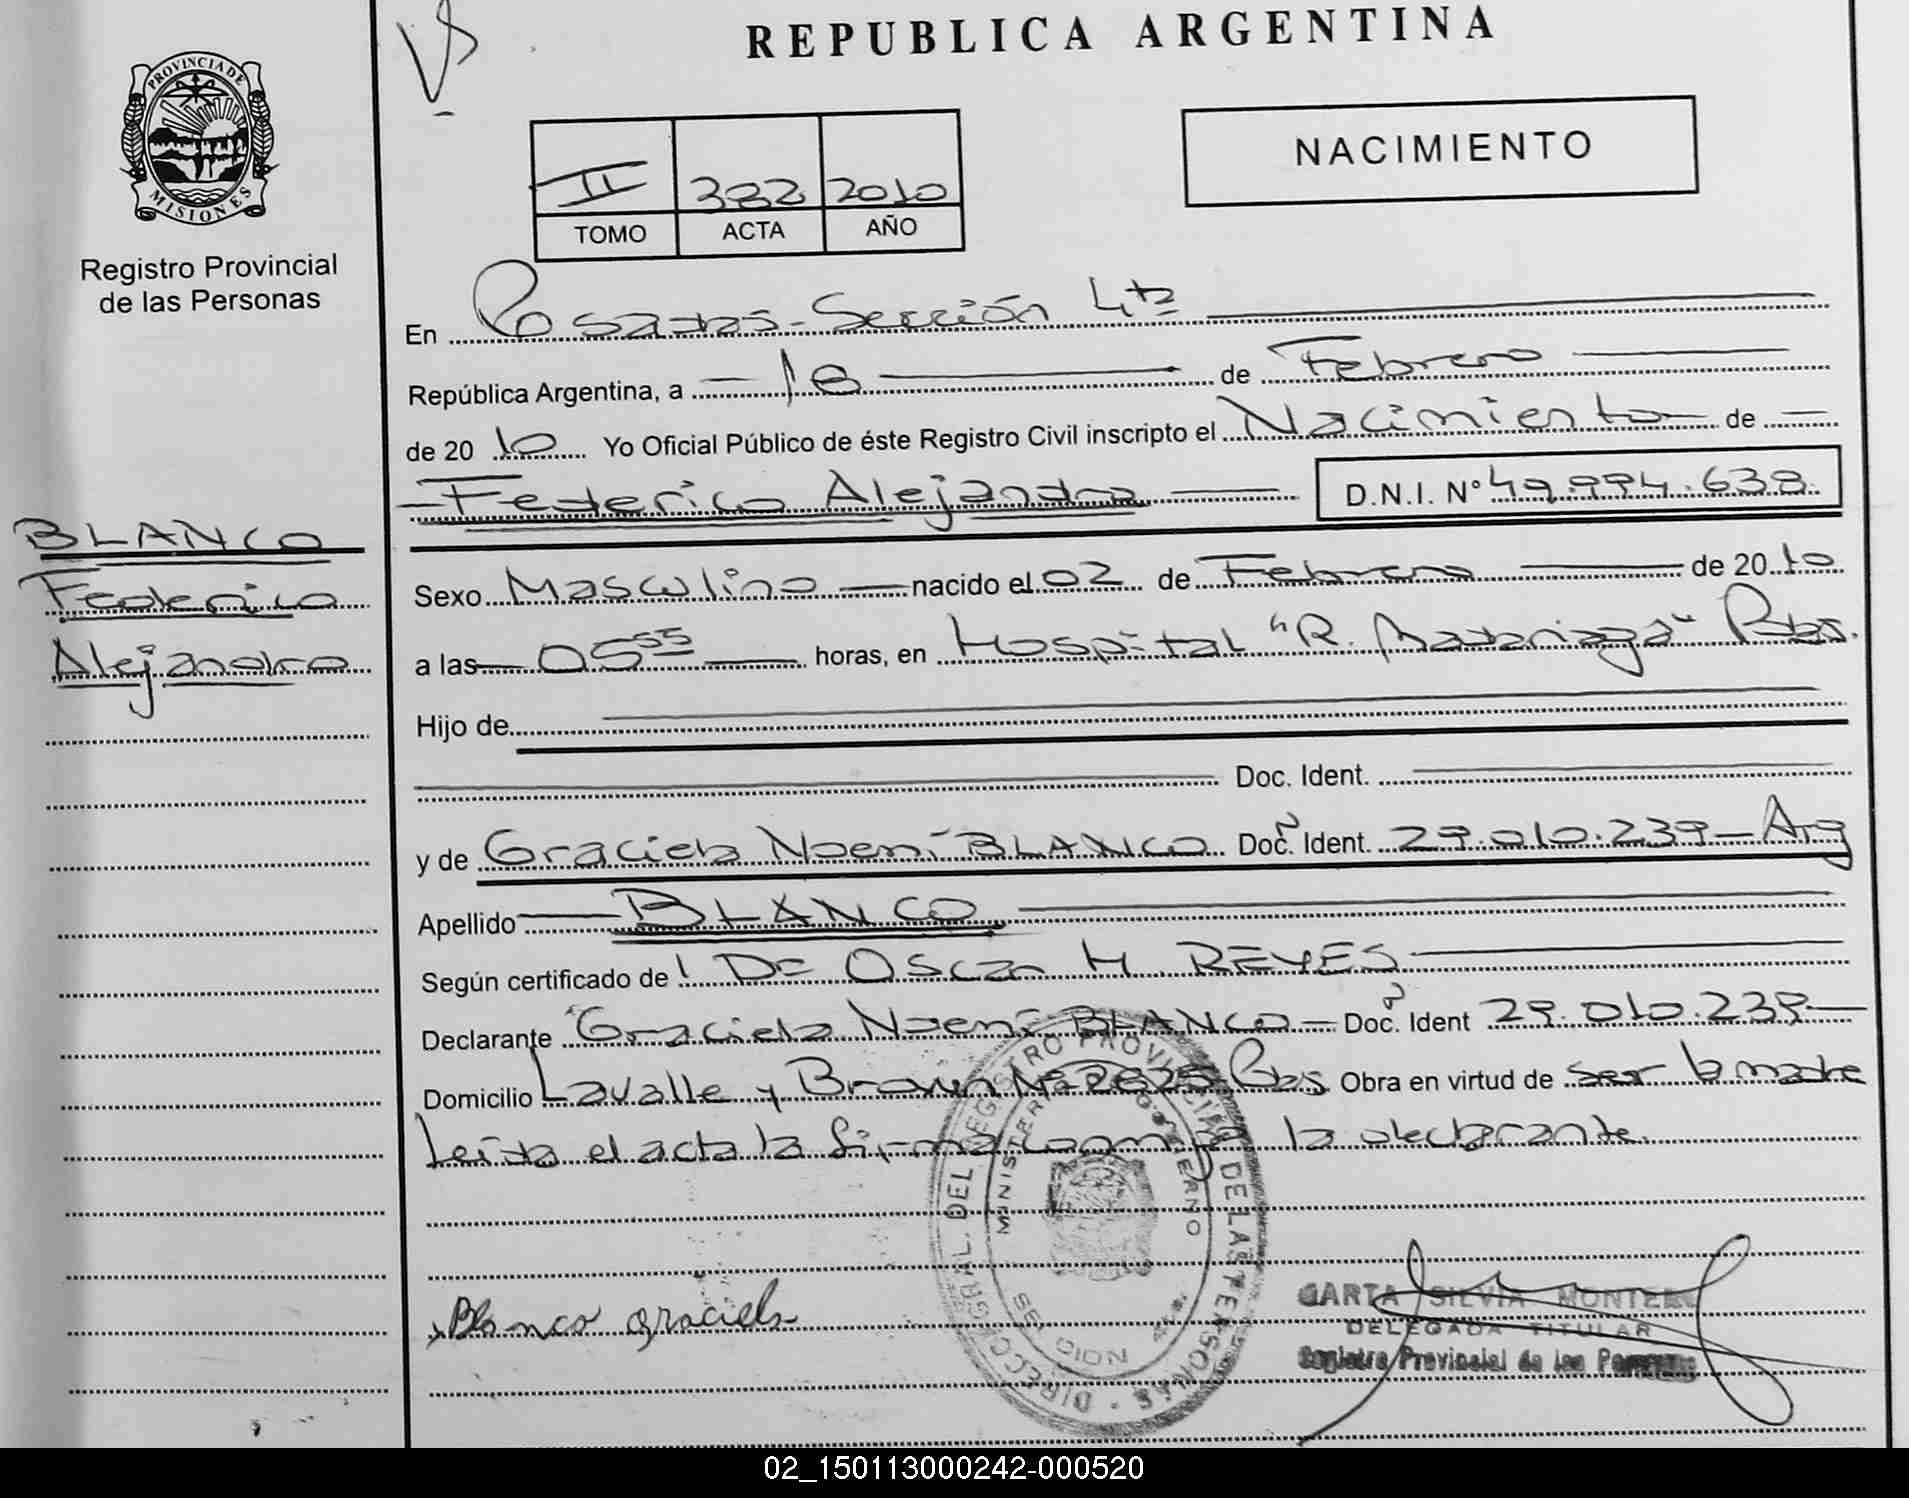 REPUBLICA ARGENTINA
PROVINCIA DE
MISIONES
Registro Provincial
de las Personas
NACIMIENTO
II 382 2010
TOMO ACTA AÑO
En Posadas - Sección 4ta
República Argentina, a 18 de Febrero
de 20 10 Yo Oficial Público de éste Registro Civil inscripto el Nacimiento de
Federico Alejandro D.N.I. Nº 49.994.638.
BLANCO
Federico
Alejandro
Sexo Masculino nacido el 02 de Febrero de 20 10
a las 05 55 horas, en Hospital "R. Madariaga" Pdas.
Hijo de
Doc. Ident.
y de Graciela Noemí BLANCO Doc. Ident. 29.010.239 - Arg
Apellido BLANCO
Según certificado de Dr Oscar H REYES
Declarante Graciela Noemí BLANCO - Doc. Ident 29.010.239
Domicilio Lavalle y Brown Nº 2625 Pdas Obra en virtud de ser la madre
Leída el acta la firma conmigo la declarante.
DIRECCION GRAL. DEL REGISTRO PROVINCIAL DE LAS PERSONAS
MINISTERIO DE GOBIERNO
Blanco graciela
SILVIA
DELEGADA TITULAR
Registro Provincial de las Personas
02_150113000242-000520